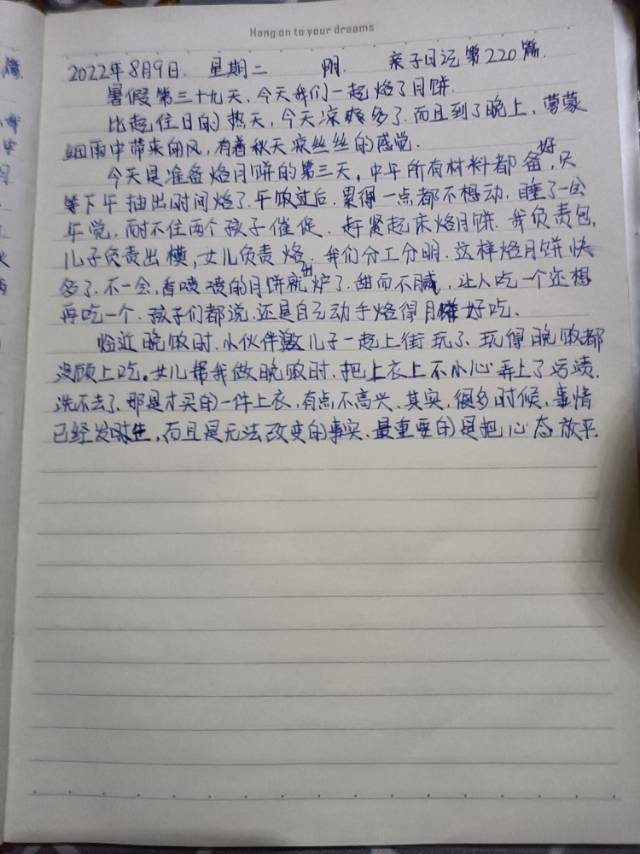 Hang on to your dreams
2022年8月9日. 星期二 阴. 亲子日记第220篇.
暑假第三十九天,今天我们一起烙了月饼.
比起往日的热天,今天凉爽多了.而且到了晚上,蒙蒙
细雨中带来的风,有着秋天凉丝丝的感觉.
今天是准备烙月饼的第三天,中午所有材料都备好,只
等下午抽出时间烙了.午饭过后.累得一点都不想动,睡了一会
午觉,耐不住两个孩子催促.赶紧起床烙月饼.我负责包,
儿子负责出模,女儿负责烙.我们分工分明.这样烙月饼快
多了.不一会,香喷喷的月饼就出炉了.甜而不腻,让人吃一个还想
再吃一个.孩子们都说,还是自己动手烙得月饼好吃.
临近晚饭时.小伙伴邀儿子一起上街玩了.玩得晚饭都
没顾上吃。女儿帮我做晚饭时.把上衣上不小心弄上了污渍.
洗不去了.那是才买的一件上衣,有点不高兴.其实,很多时候,事情
已经发生,而且是无法改变的事实.最重要的是把心态放平.